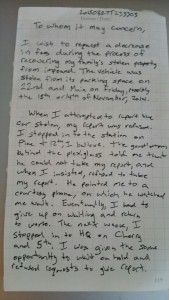 To whom it may concern,
I wish to request a decrease
in fees during the process of
recovering my family's stolen property
from impound. The vehicle was
stolen from its parking space on
22nd and Main on Friday, mostly
the 15th or 16th of November,
When I attempted to report the
car stolen, my report was refused.
I stopped into the station on
Pine + 18th, I believe. The gentleman
behind the plexiglass told me that
he could not take my report and
when I insisted, refused to take
my report. He pointed me to a
courtesy phone, on which he watched
me wait. Eventually, I had to
give up on waiting and return
to work. The next week, I
stopped in to HQ on Cherry
and 5th. I was given the same
opportunity to wait on hold and
refused requests to give report.